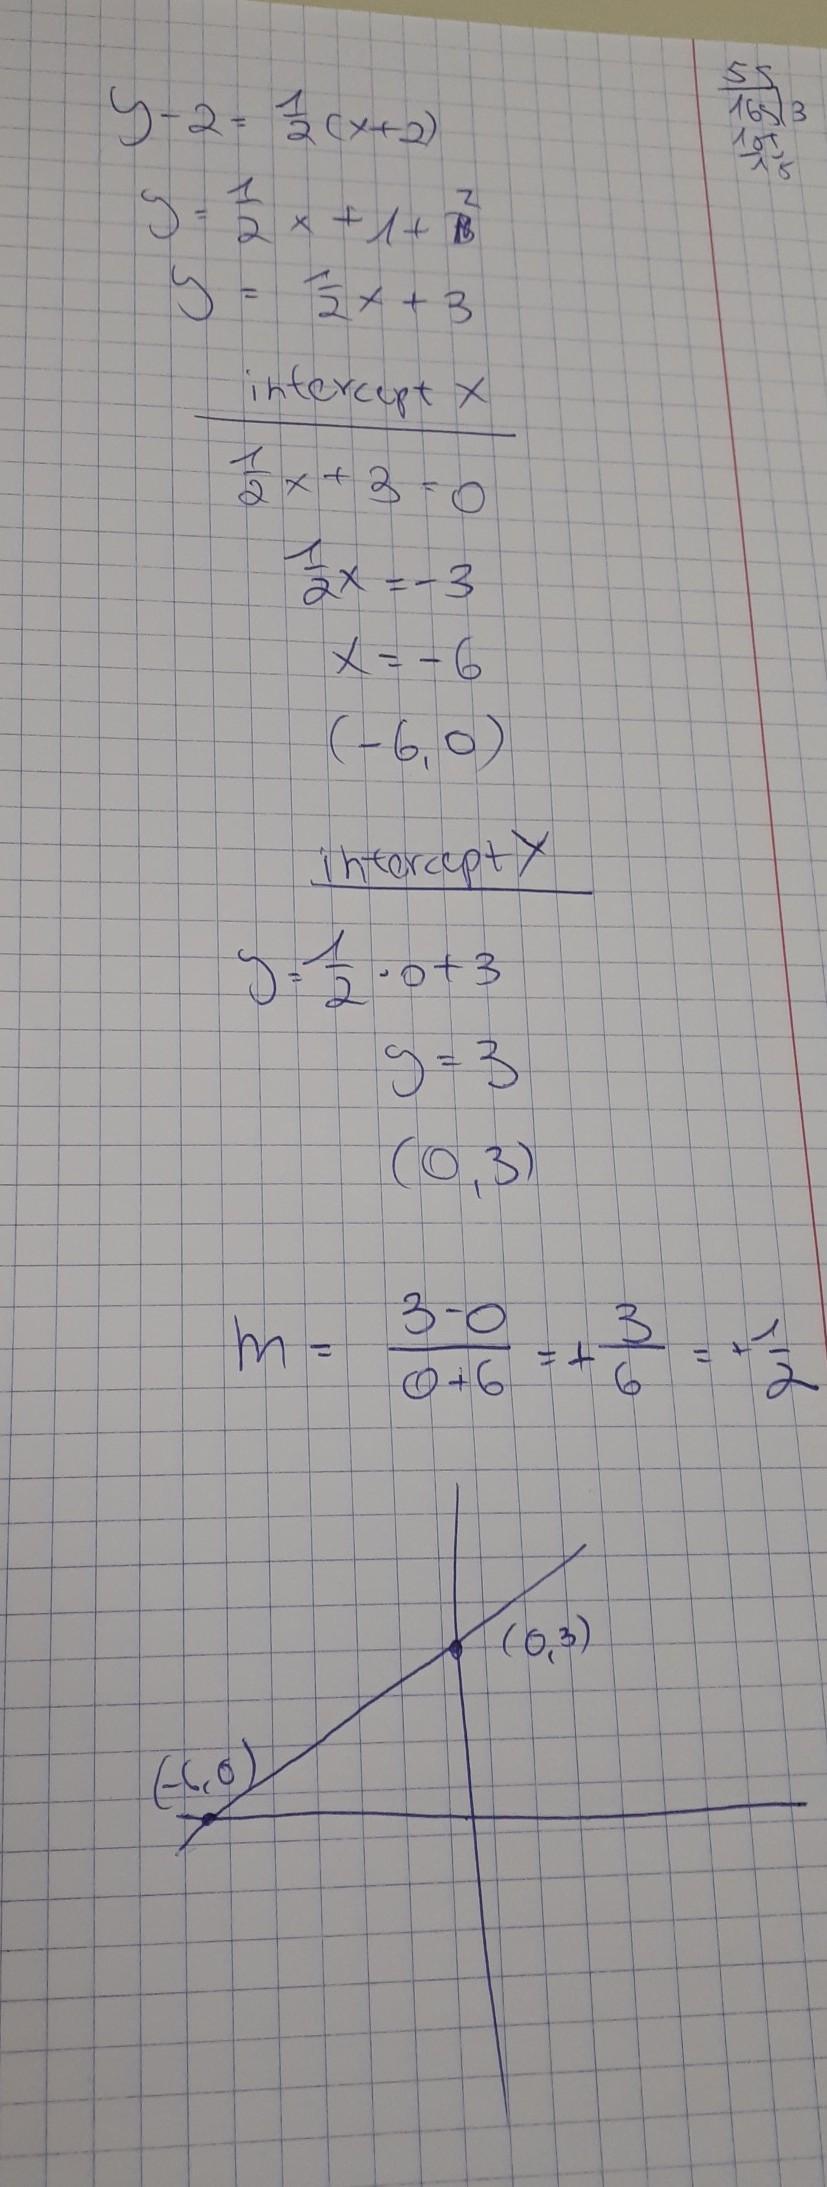 y-2 = 1/2 (x+2)
y = 1/2 x + 1 + 2
y = 1/2 x + 3
intercept X
1/2 x + 3 = 0
1/2 x = -3
x = -6
(-6,0)
intercept Y
y = 1/2 · 0 + 3
y = 3
(0,3)
m = 3-0 / 0+6 = + 3/6 = + 1/2
(0,3)
(-6,0)
55
165 3
15